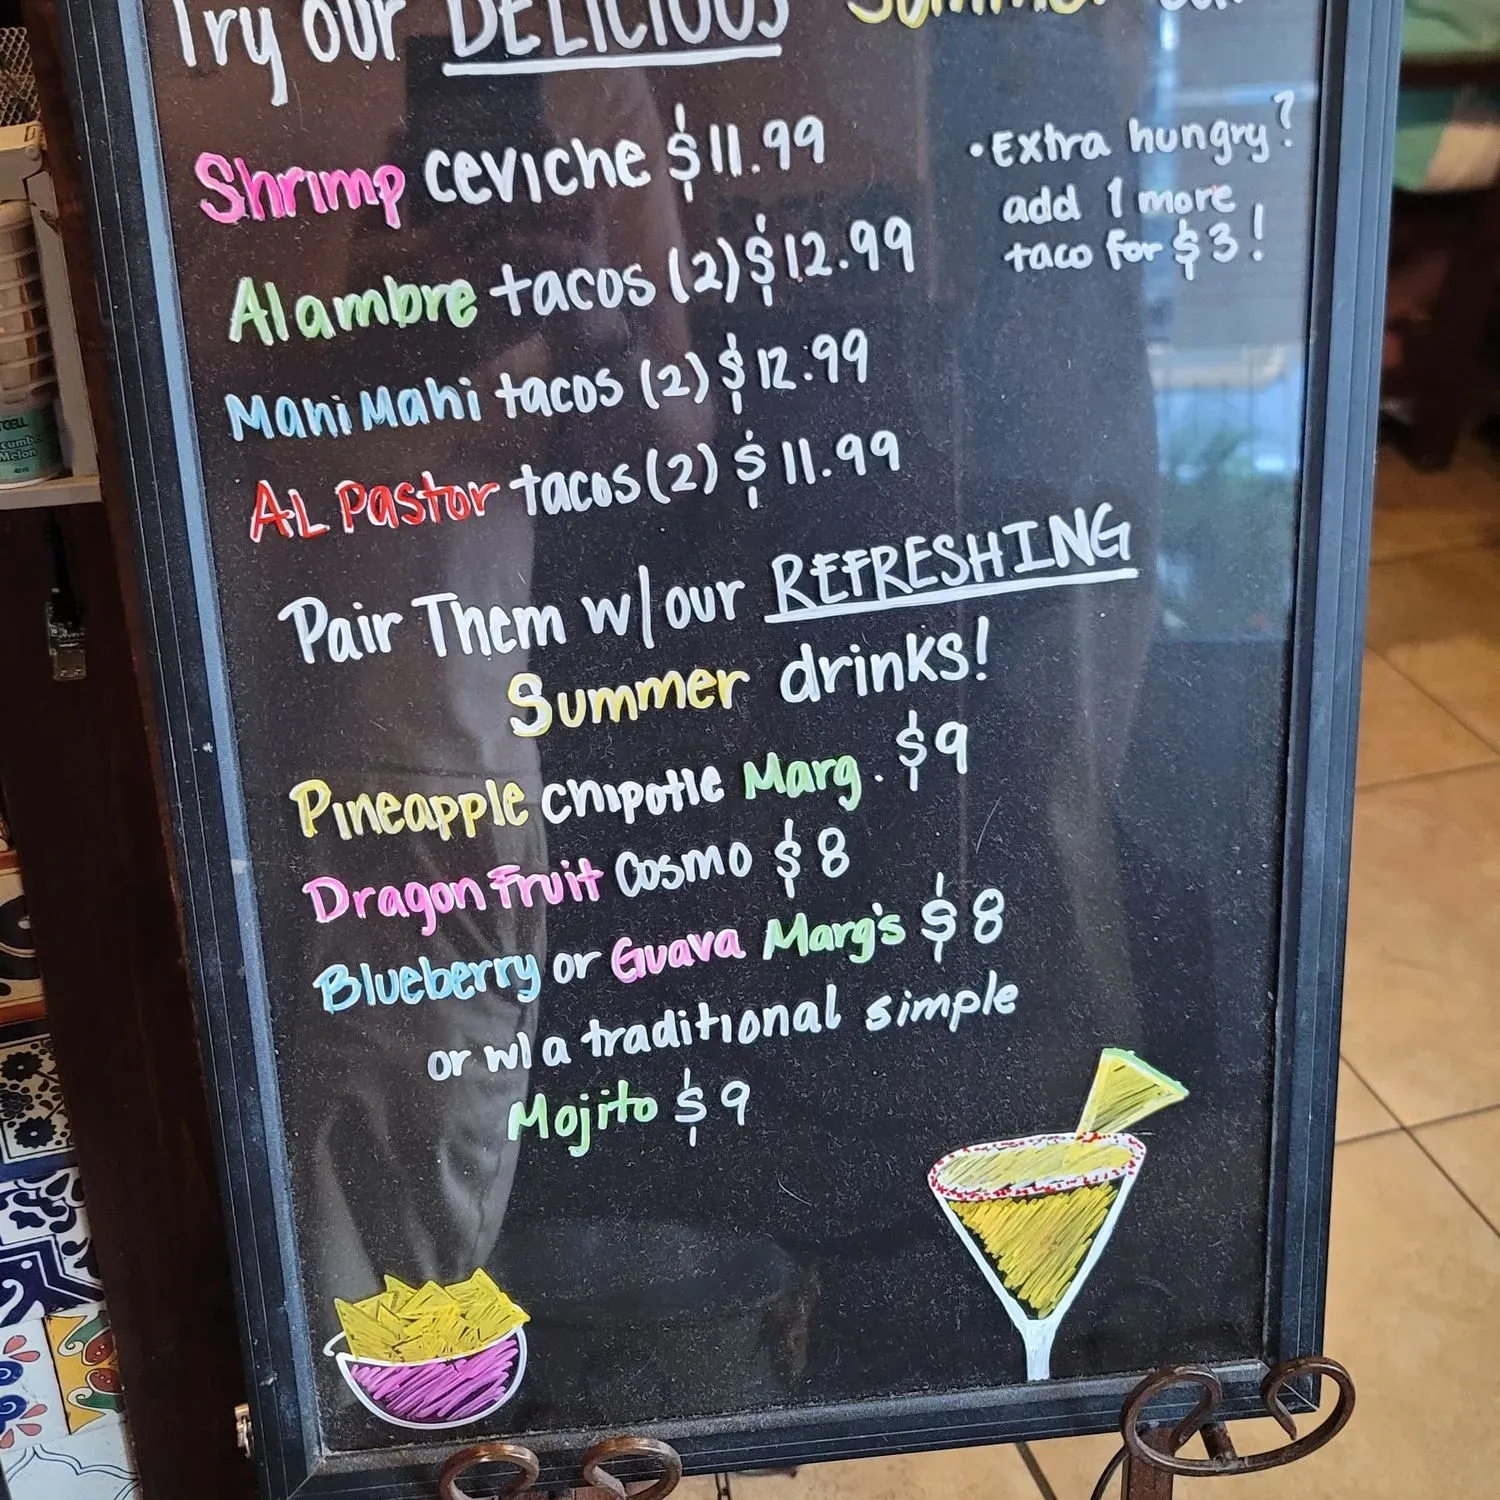 Try our DELICIOUS Summer
Shrimp ceviche $11.99
Alambre tacos (2) $12.99
Mahi Mahi tacos (2) $12.99
AL Pastor tacos (2) $11.99
• Extra hungry?
add 1 more
taco for $3!
Pair Them w/ our REFRESHING
Summer drinks!
Pineapple chipotle Marg. $9
Dragon Fruit Cosmo $8
Blueberry or Guava Marg's $8
or w/ a traditional simple
Mojito $9
Melon